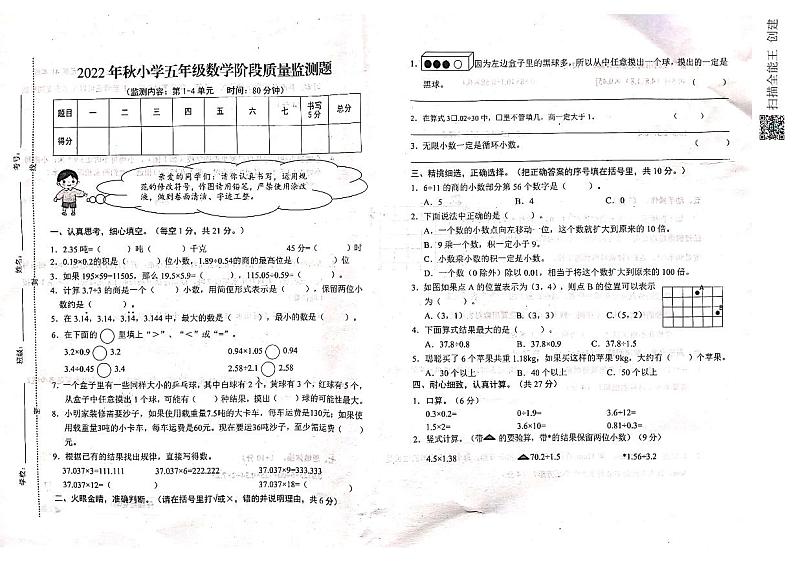 2022 年秋小学五年级数学阶段质量监测题
（监测内容：第 1-4 单元 时间：80 分钟）
题目 一 二 三 四 五 六 七 书写5分 总分
得分
亲爱的同学们：请你认真书写，运用规
范的修改符号，作图请用铅笔，严禁使用涂改
液，做到卷面清洁、字迹工整。
一、认真思考，细心填空。（每空 1 分，共 21 分。）
1、2.35 吨=（ ）吨（ ）千克 45 分=（ ）时
2、0.19×0.2的积是（ ）位小数，1.89÷0.54的商的最高位是（ ）位
3、如果 195×59=11505，那么 19.5×5.9=（ ），115.05÷0.59=（ ）。
4、计算 3.7÷3 的商是一个（ ）小数，用简便形式表示是（ ），保留两位小
数约是（ ）。
5、在 3.14，3.144，3.14，3.144 中，最大的数是（ ），最小的数是（ ）。
6、在下面的 ○ 里填上“＞”、“＜”或“=”。
3.2×0.9 ○ 3.2 0.94×1.05 ○ 0.94
3.4÷0.45 ○ 3.4 2.58÷2.1 ○ 2.58
7、一个盒子里有一些同样大小的乒乓球，其中白球有 2 个，黄球有 3 个，红球有 5 个，
从盒子中任意摸出 1 个球，可能有（ ）种结果，摸出（ ）球的可能性最大。
8、小明家装修需要沙子，如果使用载重量7.5吨的大卡车，每车运费是130元；如果使
用载重量3吨的小卡车，每车运费是60元。现在要运36吨沙子，至少需运费（ ）
元。
9、根据已有的结果找出规律，直接写得数。
37.037×3=111.111 37.037×6=222.222 37.037×9=333.333
37.037×12=（ ） 37.037×18=（ ）
二、火眼金睛，准确判断。（请在括号里打√或×，错的并说明理由，共 6 分）
1、因为左边盒子里的黑球多，所以从中任意摸出一个球，摸出的一定是
黑球。 （ ）
2、在算式 3□.02÷30 中，□里不管填几，商一定大于 1。 （ ）
3、无限小数一定是循环小数。 （ ）
三、精挑细选，正确选择。（把正确答案的序号填在括号里，共 10 分。）
1、6÷11 的商的小数部分第 56 个数字是（ ）。
A．5 B．4 C．0
2、下面说法中正确的是（ ）。
A．一个数的小数点向左移动一位，这个数就扩大到原来的 10 倍。
B．9 乘一个数，积一定小于 9。
C．小数乘小数的积一定是小数。
D．一个数（0 除外）除以 0.01，相当于将这个数扩大到原来的 100 倍。
3、如图如果点 A 的位置表示为（3，4），则点 B 的位置可以表示
为（ ）。
A.（3，1） B.（3，3） C.（5，2）
A
B
4、下面算式结果最大的是（ ）．
A．37.8÷0.8 B．37.8×0.9 C．37.8÷1.5
5、聪聪买了 6 个苹果共重 1.18kg，如果买这样的苹果 9kg，大约有（ ）个苹果。
A．30 个以上 B．40 个以上 C．50 个以上
四、耐心细致，认真计算。（共 27 分）
1、口算。（6 分）
0.3×0.2= 0÷1.9= 3.6÷12=
1.5×2= 3.6×10= 0.81÷0.3=
2、竖式计算。（带▲的要验算，带*的结果保留两位小数）（9 分）
4.5×1.38 ▲70.2÷1.5 *1.56÷3.2
考号：
姓名：
班级：
学校：
线
封
密
扫描全能王 创建